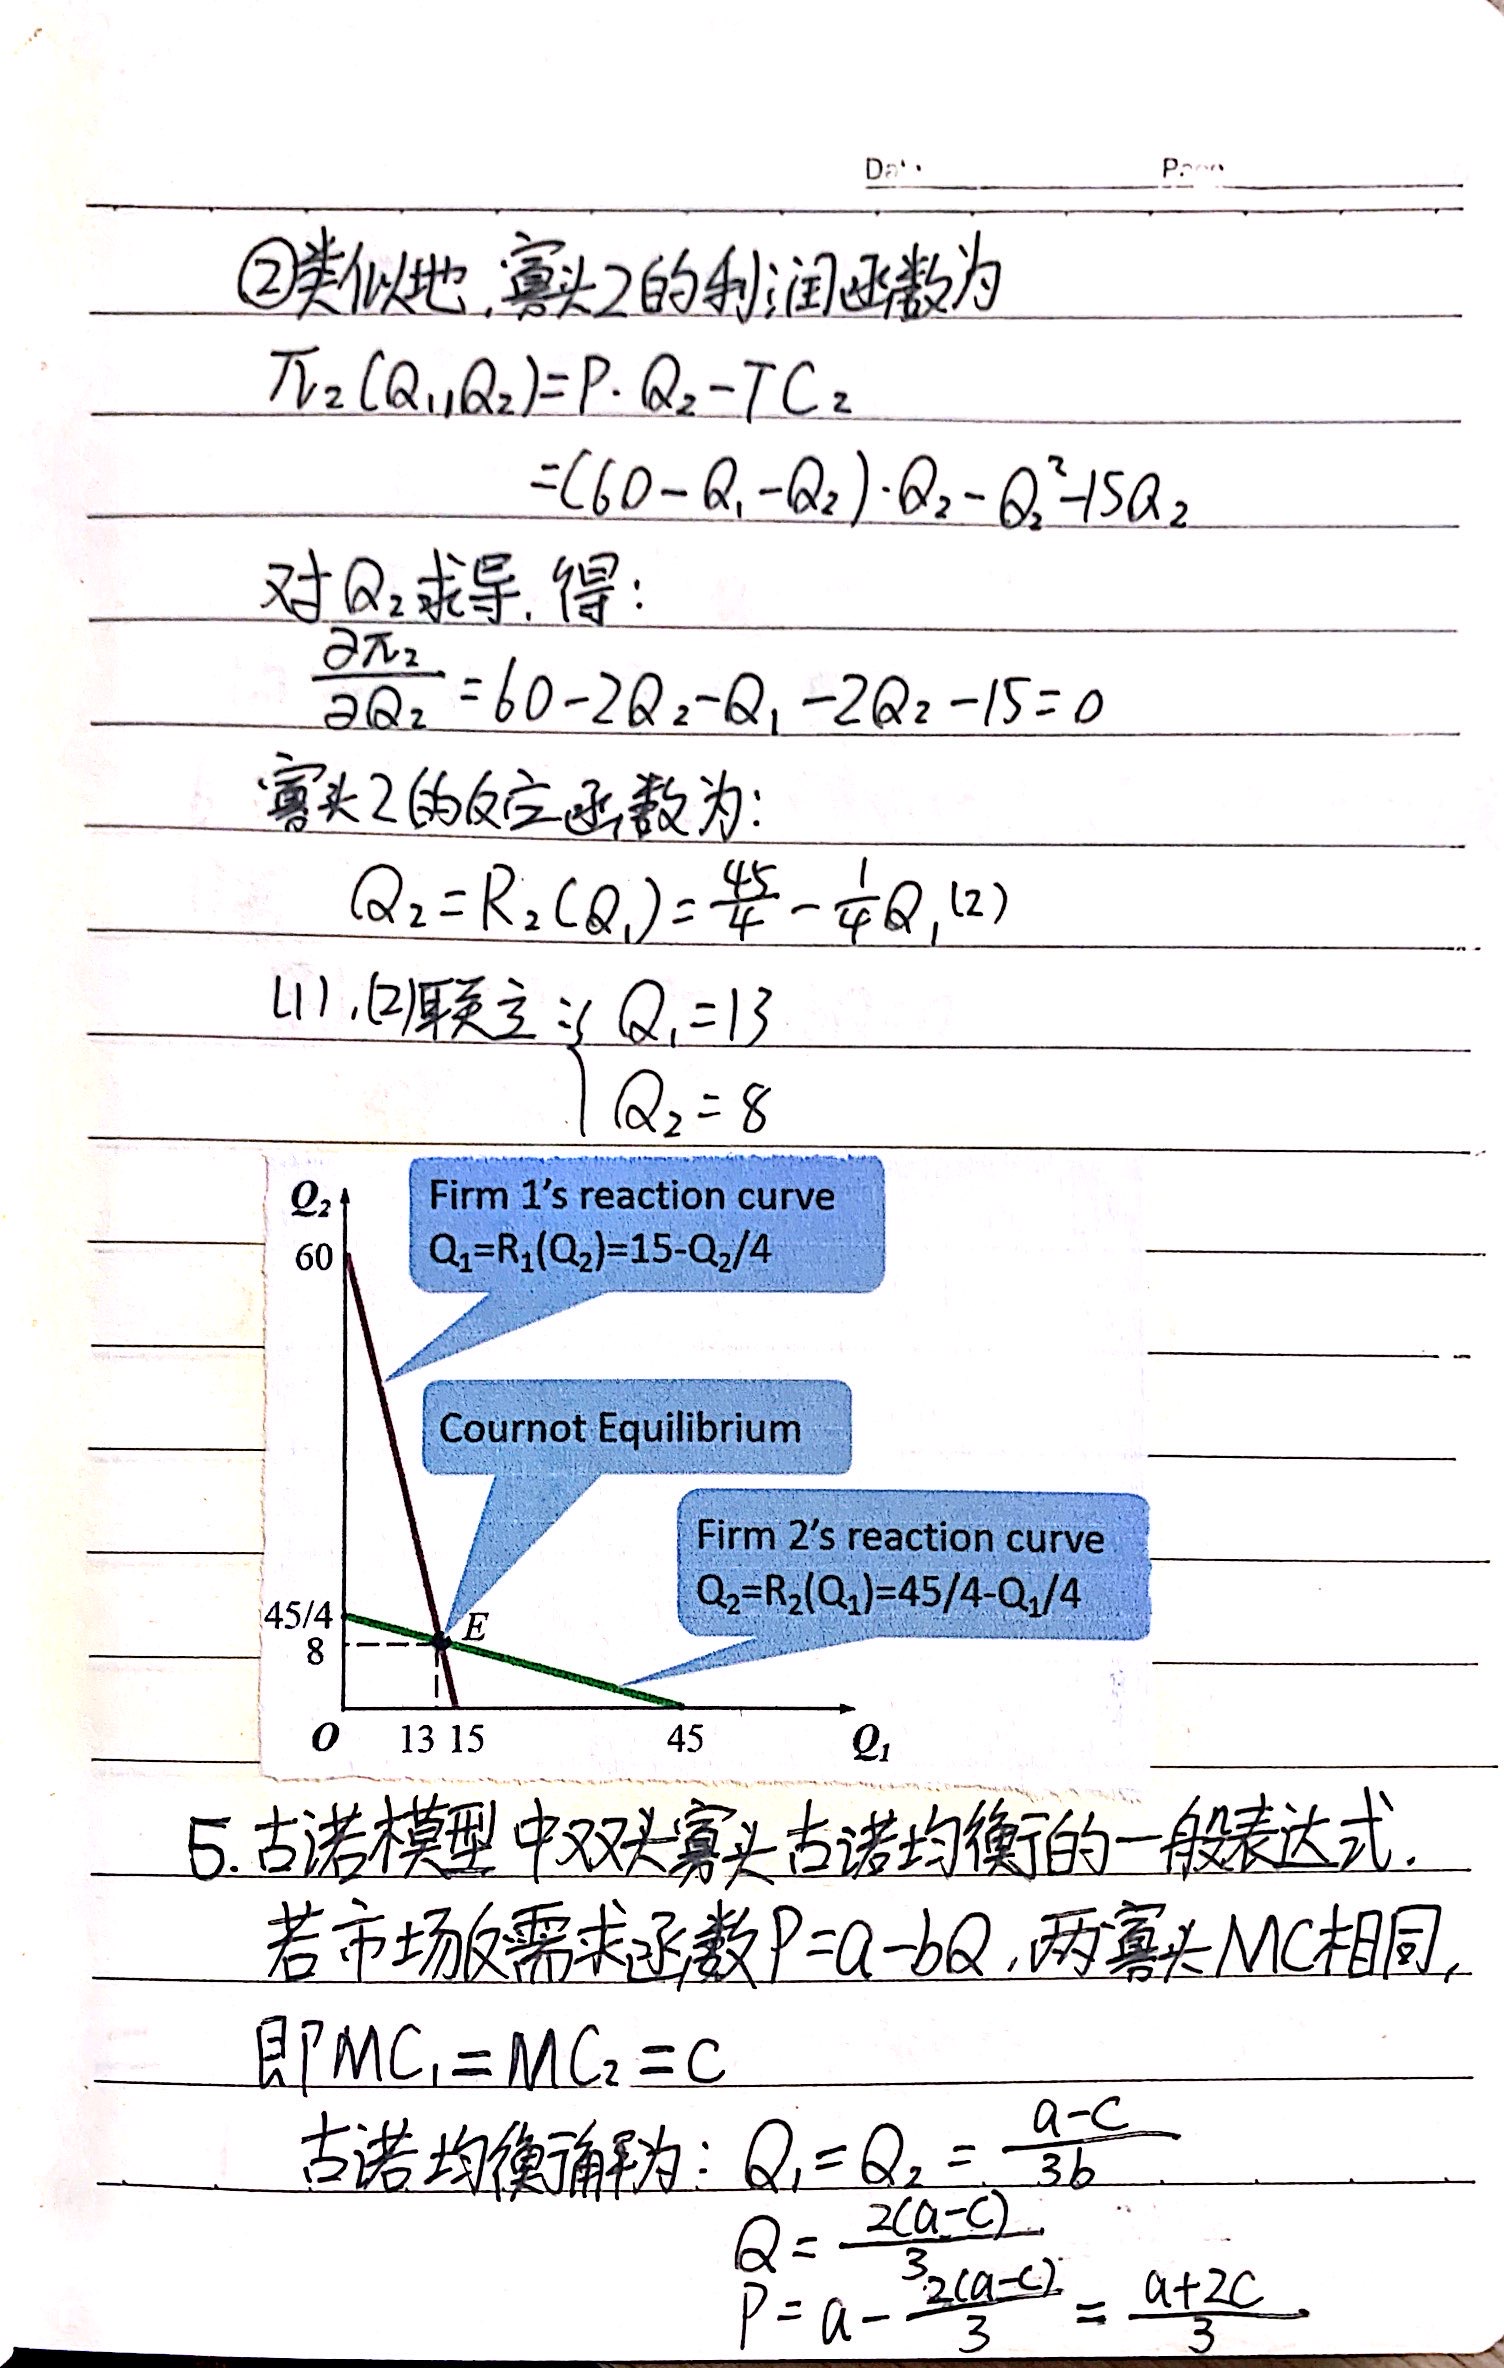 ②类似地,寡头2的利润函数为
π₂(Q₁,Q₂)=P·Q₂-TC₂
=(60-Q₁-Q₂)·Q₂-Q₂²-15Q₂
对Q₂求导,得:
∂π₂/∂Q₂=60-2Q₂-Q₁-2Q₂-15=0
寡头2的反应函数为:
Q₂=R₂(Q₁)=45/4-1/4Q₁ (2)
(1),(2)联立:{Q₁=13
Q₂=8
Q₂
Firm 1's reaction curve
Q₁=R₁(Q₂)=15-Q₂/4
60
Cournot Equilibrium
Firm 2's reaction curve
Q₂=R₂(Q₁)=45/4-Q₁/4
45/4
E
8
O 13 15 45 Q₁
5.古诺模型中双头寡头古诺均衡的一般表达式.
若市场反需求函数P=a-bQ,两寡头MC相同,
即MC₁=MC₂=C
古诺均衡解为: Q₁=Q₂=(a-c)/3b
Q=2(a-c)/3
P=a-2(a-c)/3=(a+2c)/3